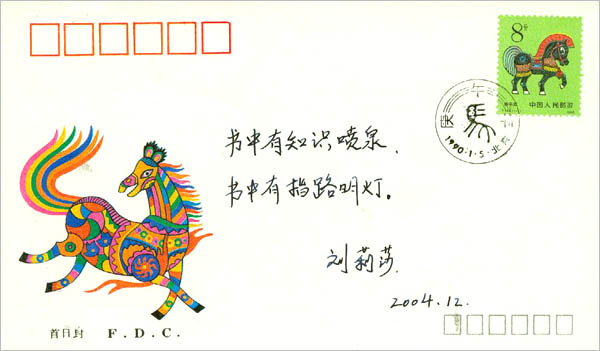 8分
庚午年
中国人民邮政
庚午年
1990·1·5·北京
书中有知识喷泉、
书中有指路明灯。
刘莉莎
2004.12.
首日封 F.D.C.